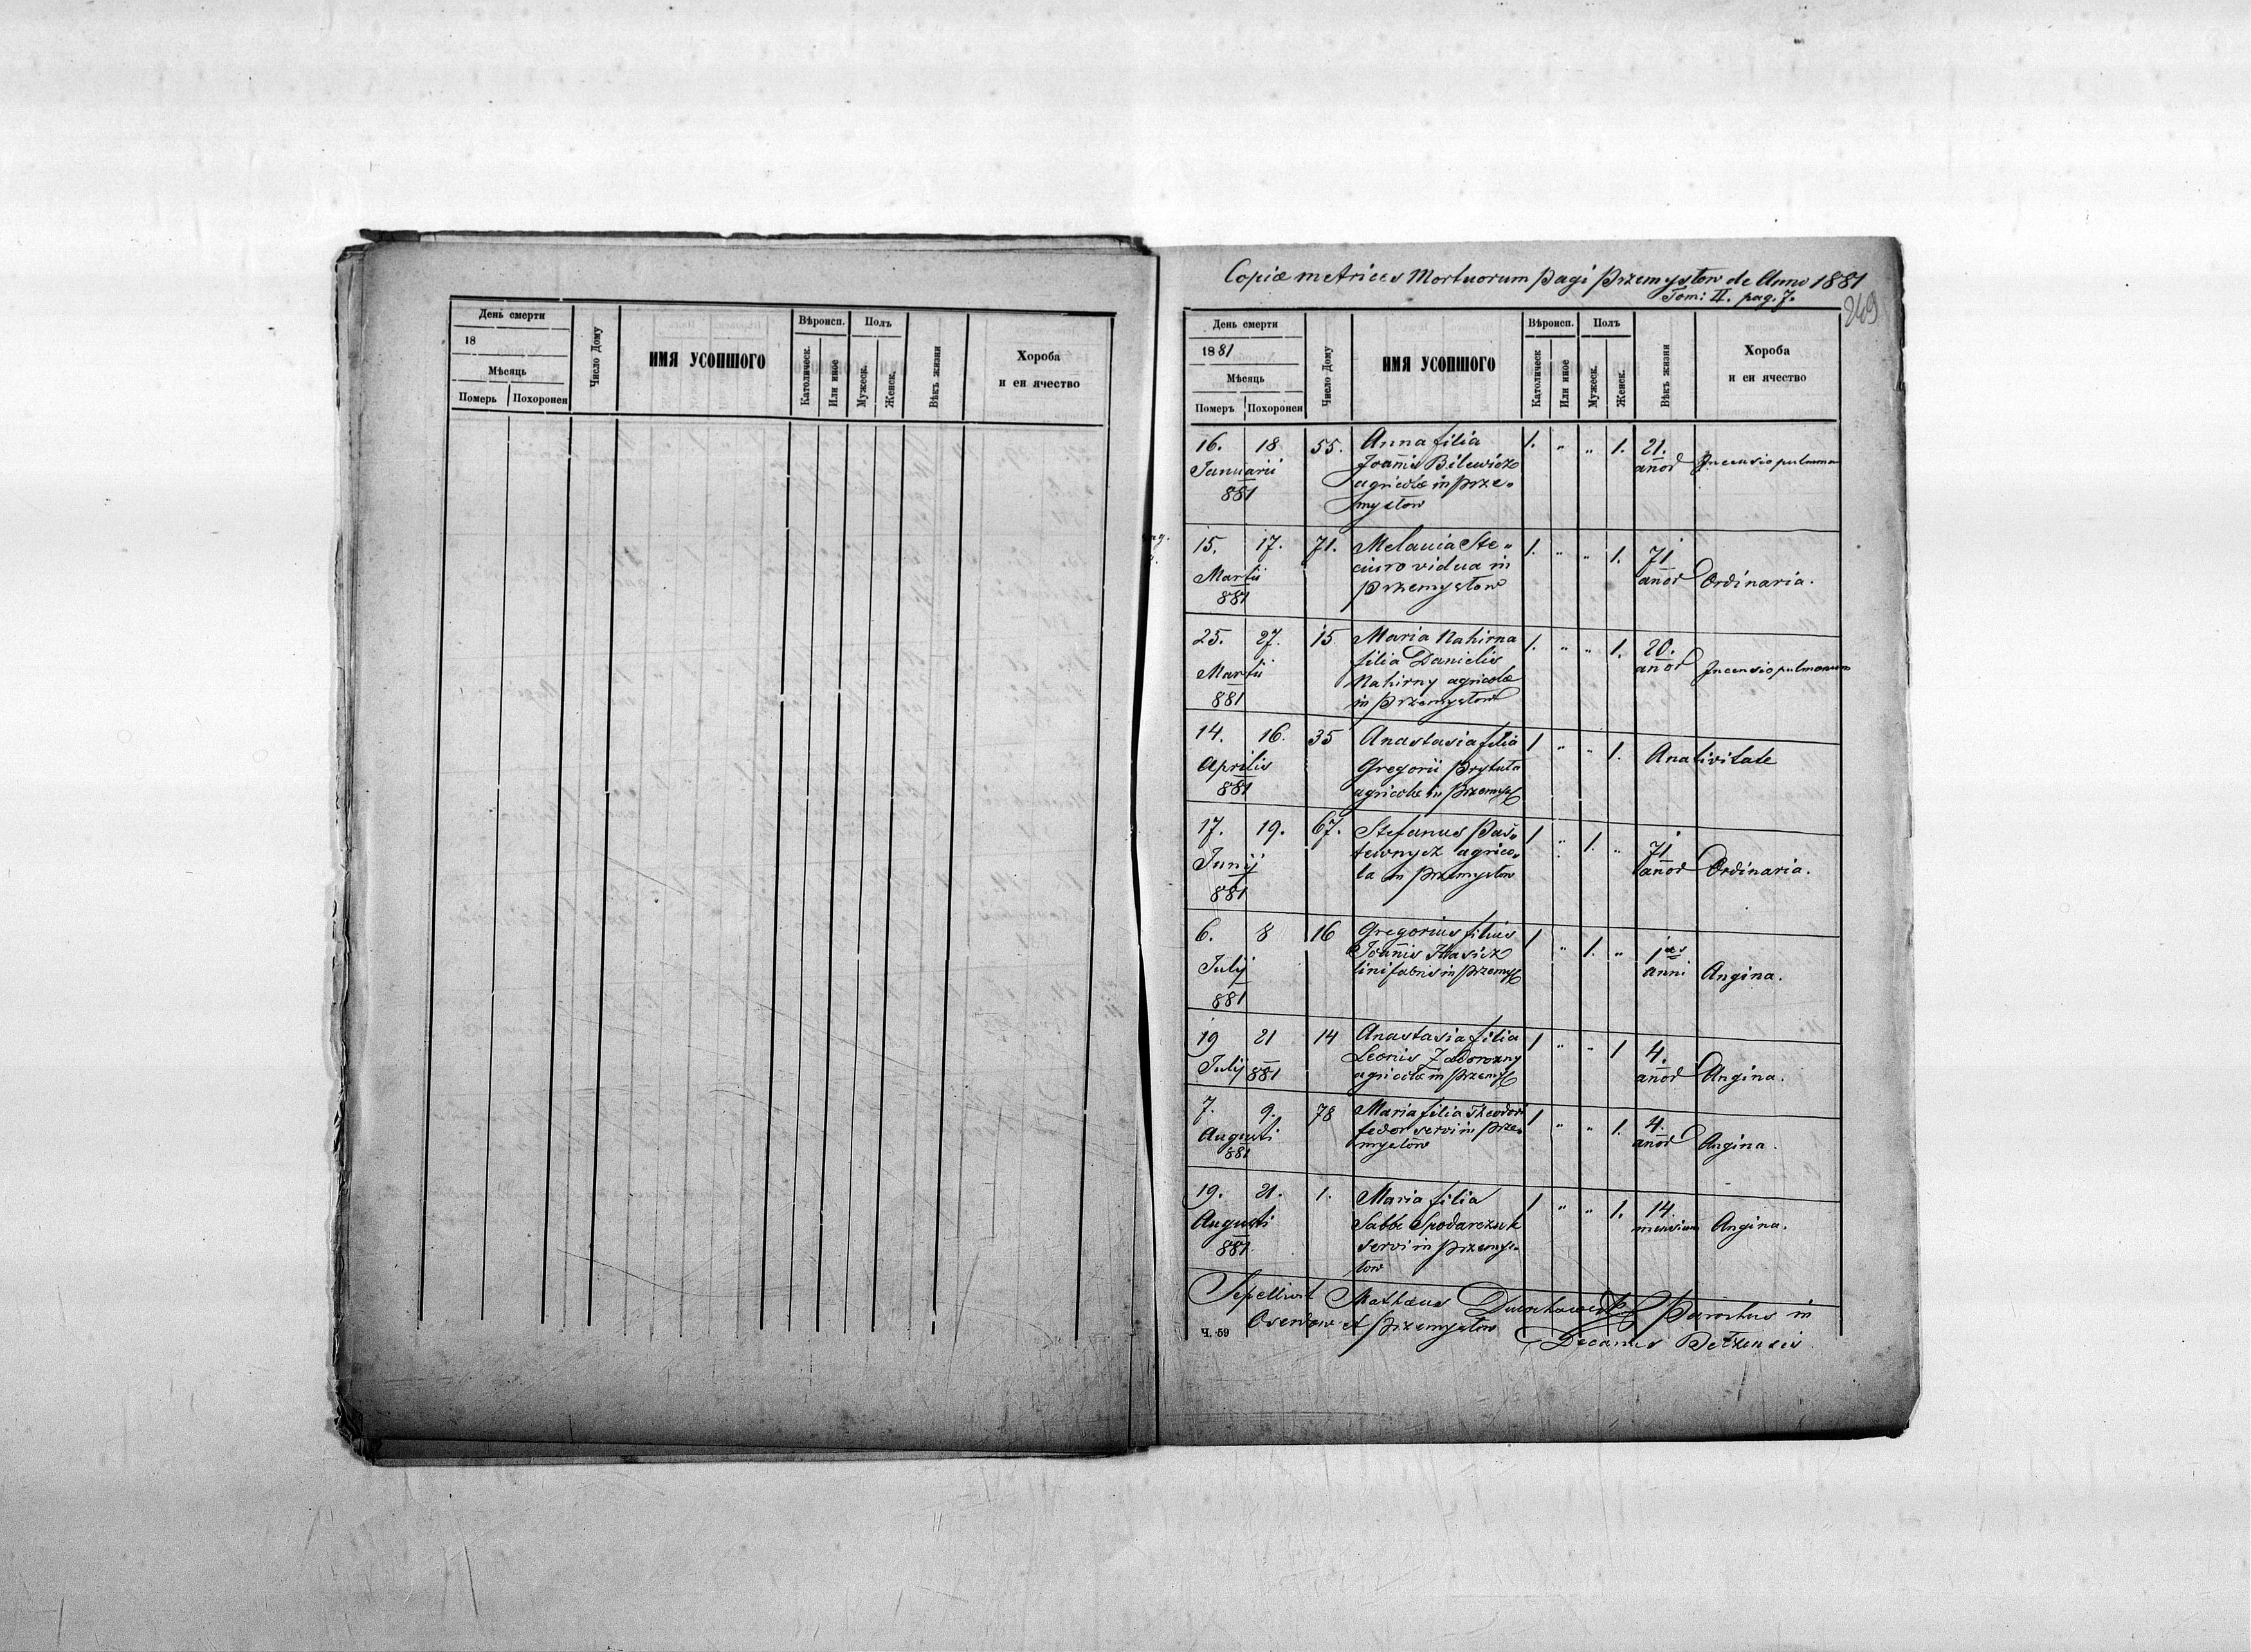 День смерти
18
Мѣсяць
Померъ
Похоронен
Число Дому
ИМЯ УСОПШОГО
Вѣроисп.
Католическ.
Или иное
Полъ
Мужеск.
Женск.
Вѣкъ жизни
Хороба
и еи ячество
Copiæ metrices Mortuorum pagi Przemysłow de Anno 1881
Tom: II. pag. 7.
249
День смерти
1881
Мѣсяць
Померъ
Похоронен
Число Дому
ИМЯ УСОПШОГО
Вѣроисп.
Католическ
Или иное
Полъ
Мужеск.
Женск.
Вѣкъ жизни
Хороба
и еи ячество
16. 18 55. Anna filia 1. " " 1. 21.
Januarii Joannis Bilewicz anor Incensio pulmon
881 agricolæ in Prze-
mysłow
15. 17. 71. Melania Ste- 1. " " 1. 71
Martii vidua in anor Ordinaria.
881 Przemysłow
25. 27. 15 Maria Nahirna 1. " " 1. 20.
Martii filia Danielis anor Incensio pulmonum
881 Nahirny agricolæ
in Przemysłow
14. 16. 35 Anastasia filia 1 " " 1. A nativitate
Aprilis Gregorii Prytuła
881 agricolæ in Przemysł
17. 19. 67. Stefanus 1 " 1. " 71
Junij agrico- anor Ordinaria.
881 la in Przemysłow
6. 8 16 Gregorius filius 1 " 1. " 1
Julij Joannis anni Angina.
881 linifabris in Przemysł
19 21 14 Anastasia filia 1 " " 1 4.
Julij 881 Leonis Zadorozny anor Angina.
agricolæ in Przemysł
7. 9. 78 Maria filia Theodori 1 " " 1. 4.
Augusti Fedor servi in Prze- anor Angina.
881 mysłow
19. 21. 1. Maria filia 1 " " 1. 14.
Augusti Sabbe Spodarczuk mensium Angina.
881 servi in Przemys-
łow
Sepelivit Mathæus Parochus in
Oserdow et Przemysłow Decanus Bełzensis
Ч. 59